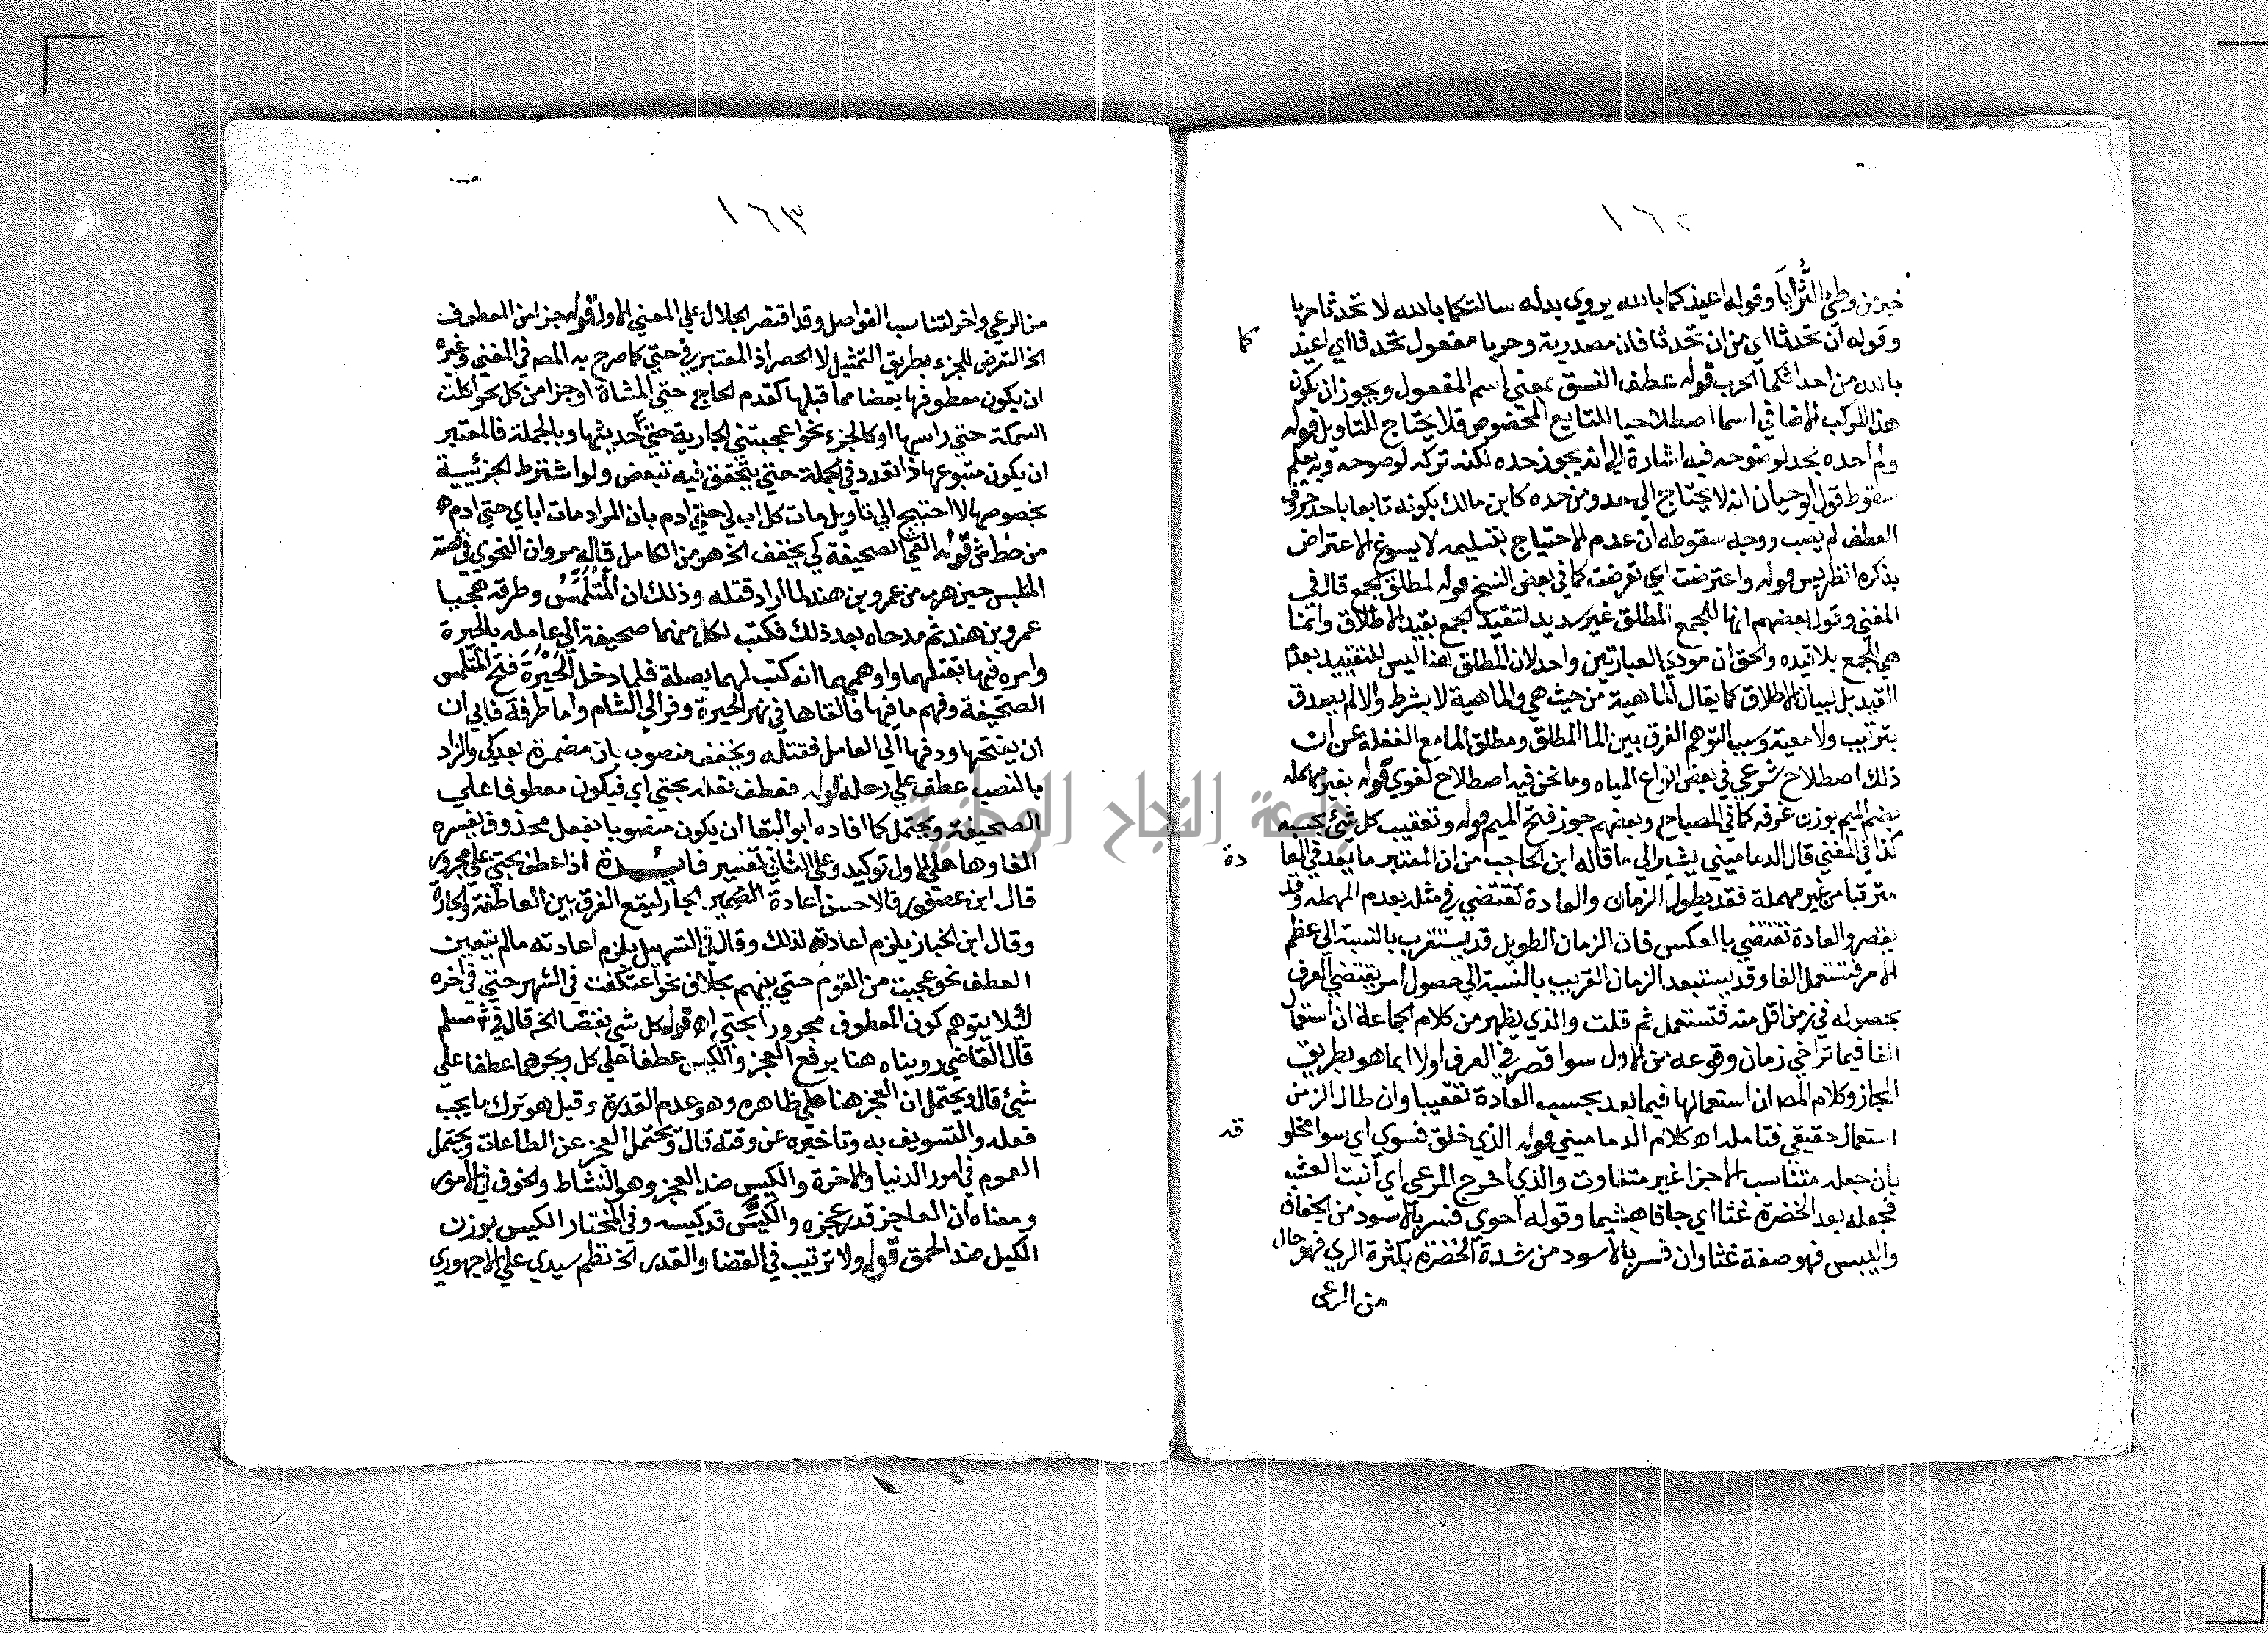 ١٦٢
خير من وطئ الثُّرَايَا وقوله اعيذكما بالله يروي بدله سالتكما بالله لا تحدثا حربا
وقوله ان تحدثا اي من ان تحدثا فان مصدرية وحربا مفعول تحدثا اي اعيذ كما
بالله من احداثكما الحرب قوله عطف النسق بمعني اسم المفعول ويجوز ان يكون
هذا المركب الاضافي اسما اصطلاحيا للتابع المخصوص فلا يحتاج للتاويل قوله
ولم احده بحد لوضوحه فيه اشارة الي انه يجوز حده لكنه تركه لوضوحه وبه يعلم
سقوط قول ابو حيان انه لا يحتاج الي حد ومن حده كابن مالك بكونه تابعا باحد حروف
العطف لم يصب ووجه سقوطه ان عدم الاحتياج بتسليمه لا يسوغ الاعتراض
بذكره انظر يس قوله واعترضت اي تعرضت كما في بعض النسخ قوله لمطلق الجمع قال في
المغني وقول بعضهم انها للجمع المطلق غير سديد لتقيد الجمع بقيد الاطلاق وانما
هي للجمع بلا قيده والحق ان مودي العبارتين واحد لان المطلق هنا ليس للتقييد بعدم
القيد بل لبيان الاطلاق كما يقال الماهية من حيث هي والماهية لا بشرط والا لم يصدق
بترتيب ولا معية وسبب التوهم الفرق بين الما المطلق ومطلق الما مع الغفلة عن ان
ذلك اصطلاح شرعي في بعض انواع المياه وما نحن فيه اصطلاح لغوي قوله بغير مهمله
بضم الميم بوزن غرفه كما في المصباح وبعضهم جوز فتح الميم قوله وتعقيب كل شئ بحسبه
كذا في المغني قال الدماميني يشير الي ما قاله ابن الحاجب من ان المعتبر ما يعد في العادة
مترتبا من غير مهملة فقد يطول الزمان والعادة تقتضي في مثله بعدم المهمله وقد
يقصر والعادة تقتضي بالعكس فان الزمان الطويل قد يستقرب بالنسبة الي عظم
الامر فتستعمل الفا وقد يستبعد الزمان القريب بالنسبة الي حصول امر يقتضي العرف
بحصوله في زمن اقل منه فتستعمل ثم قلت والذي يظهر من كلام الجماعة ان استعمال
الفا فيما تراخي زمان وقوعه من الاول سوا قصر في العرف اولا انما هو بطريق
المجاز وكلام المصه ان استعمالها فيما يعد بحسب العادة تعقيبا وان طال الزمن
استعمال حقيقي فتامله اه كلام الدماميني قوله الذي خلق فسوي اي سوا مخلوقه
بان جعله متناسب الاجزا غير متفاوت والذي اخرج المرعي اي انبت العشب
فجعله بعد الخضرة غثا اي جافا هشيما وقوله احوي فسر بالاسود من الجفاف
واليبس فهو صفة غثا وان فسر بالاسود من شدة الخضرة بكثرة الري فهو حال
من الرعي
١٦٣
من الرعي واخر لتناسب الفواصل وقد اقتصر الجلال علي المعني الاول قوله جزا من المعطوف
الخ التعرض للجزء بطريق التمثيل لا الحصر اذ المعتبر في حتي كما صرح به المصه في المغني وغيره
ان يكون معطوفها بعضا مما قبلها كقدم الحاج حتي المشاة او جزا من كل نحو اكلت
السمكة حتي راسها او كالجزء نحو اعجبتني الجارية حتي حديثها وبالجملة فالمعتبر
ان يكون متبوعها ذا تعدد في الجملة حتي يتحقق فيه تبعض ولو اشترط الجزئيية
بخصوصها لاحتيج الي تاويل مات كل اب لي حتي ادم بان المراد مات اباي حتي ادم ه
من خط ش قوله القي الصحيفة كي يخفف الخ هو من الكامل قاله مروان النحوي في قصة
المتلمس حين هرب من عمرو بن هند لما اراد قتله وذلك ان الْمُتَلَمِّسُ وطرفه هجيبا
عمرو بن هند ثم مدحاه بعد ذلك فكتب لكل منهما صحيفة الي عامله بالحيرة
وامره فيها بقتلهما واوهمهما انه كتب لهما بصلة فلما دخل الْحِيْرَةَ فتح المتلمس
الصحيفة وفهم ما فيها فالقاها في نهر الحيرة وفر الي الشام واما طرفة فابي ان
ان يفتحها ودفعها الي العامل فقتله ويخفف منصوب بان مضمرة بعد كي والزاد
بالنصب عطف علي رحله قوله فعطف نعله بحتي اي فيكون معطوفا علي
الصحيفة ويحتمل كما افاده ابو البقا ان يكون منصوبا بفعل محذوف يفسره
القاها هلي الاول توكيد وعلي الثاني تفسير فائدة اذا عطف بحتي علي مجرور
قال ابن عصفور فالاحسن اعادة الجار ليقع الفرق بين العاطفة والجارة
وقال ابن الخباز يلزم اعادته لذلك وقال في التسهيل يلزم اعادته مالم يتعين
العطف نحو عجبت من القوم حتي بنيهم بخلاف نحو اعتكفت في الشهر حتي في اخره
لئلا يتوهم كون المعطوف مجرورا بحتي اه قوله كل شي بقضا الخ قال في ش مسلم
قال القاضي رويناه هنا برفع العجز والكيس عطفا علي كل وبجرهما عطفا علي
شئ قال ويحتمل ان العجز هنا علي ظاهره وهو عدم القدرة وقيل هو ترك ما يجب
فعله والتسويف به وتاخيره عن وقته قال ويحتمل العجز عن الطاعات ويحتمل
العموم في امور الدنيا والاخرة والكيس ضد العجز وهو النشاط والحذق في الامور
ومعناه ان العاجز قدر عجزه والكيّس قد كيسه وفي المختار الكيس بوزن
الكيل ضد الحمق قوله ولا ترتيب في القضا والقدر الخ نظم سيدي علي الاجهوري
جامعة النجاح الوطنية